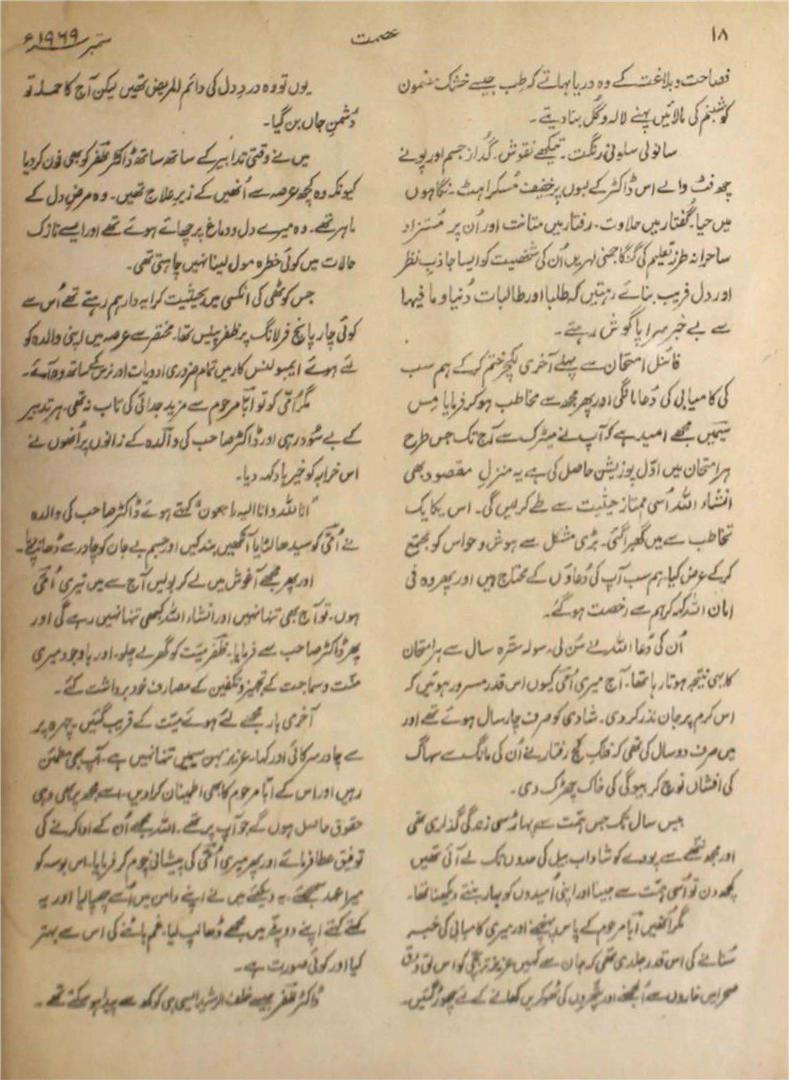 ۱۸
عصمت
ستمبر ۱۹۶۹ء
فصاحت و بلاغت کے وہ دریا بہاتے کہ طب جیسے خشک مضمون
کو شبنم کی مالائیں پہنے لالہ و گل بنا دیتے۔
سانولی سلونی رنگت۔ تیکھے نقوش۔ گداز جسم اور پونے
چھ فٹ والے اس ڈاکٹر کے لبوں پر خفیف مسکراہٹ۔ نگاہوں
میں حیا۔ گفتار میں حلاوت۔ رفتار میں متانت اور اُن پر مُستزاد
ساحرانہ طرز تعلیم کی گنگا جمنی لہریں اُن کی شخصیت کو ایسا جاذبِ نظر
اور دل فریب بنائے رہتیں کہ طلبا اور طالبات دُنیا و ما فیہا
سے بے خبر سراپا گوش رہتے۔
فائنل امتحان سے پہلے آخری لکچر ختم کر کے ہم سب
کی کامیابی کی دُعا مانگی اور پھر مجھ سے مخاطب ہو کر فرمایا مِس
سیمیں مجھے امید ہے کہ آپ نے میٹرک سے آج تک جس طرح
ہر امتحان میں اوّل پوزیشن حاصل کی ہے یہ منزلِ مقصود بھی
انشاء اللہ اُسی ممتاز حیثیت سے طے کر لیں گی۔ اس یکایک
تخاطب سے میں گھبرا گئی۔ بڑی مشکل سے ہوش و حواس کو مجتمع
کر کے عرض کیا۔ ہم سب آپ کی دُعاؤں کے محتاج ہیں اور پھر وہ فی
امان اللہ کہہ کر ہم سے رخصت ہو گئے۔
اُن کی دُعا اللہ نے سُن لی۔ سولہ سترہ سال سے ہر امتحان
کا یہی نتیجہ ہوتا رہا تھا۔ آج میری اُمّی کیوں اس قدر مسرور ہوئیں کہ
اس کرم پر جان نذر کر دی۔ شادی کو صرف چار سال ہوئے تھے اور
میں صرف دو سال کی تھی کہ فلک کج رفتار نے اُن کی مانگ سے سہاگ
کی افشاں نوچ کر بیوگی کی خاک چھڑک دی۔
بیس سال تک جس ہمت سے پہاڑ سی زندگی گذاری تھی
اور مجھ ننّھے سے پودے کو شاداب بیل کی حدوں تک لے آئی تھیں
کچھ دن تو اُسی ہمّت سے جینا اور اپنی اُمیدوں کو بہار بنتے دیکھنا تھا۔
مگر انھیں ابّا مرحوم کے پاس پہنچنے اور میری کامیابی کی خبر
سُنانے کی اس قدر جلدی تھی کہ جان سے کہیں عزیز تر بچّی کو اس لق و دق
صحرا میں خاروں سے اُلجھنے اور پتھروں کی ٹھوکریں کھانے کے لئے چھوڑ گئیں۔
یوں تو وہ دردِ دل کی دائم المریض تھیں لیکن آج کا حملہ تو
دُشمنِ جاں بن گیا۔
میں نے وقتی تدابیر کے ساتھ ساتھ ڈاکٹر ظفر کو بھی فون کر دیا
کیونکہ وہ کچھ عرصہ سے اُنھیں کے زیرِ علاج تھیں۔ وہ مرضِ دل کے
ماہر تھے۔ وہ میرے دل و دماغ پر چھائے ہوئے تھے اور ایسے نازک
حالات میں کوئی خطرہ مول لینا نہیں چاہتی تھی۔
جس کوٹھی کی انکسی میں بحیثیت کرایہ دار ہم رہتے تھے اُس سے
کوئی چار پانچ فرلانگ پر ظفر پیلس تھا۔ مختصر سے عرصہ میں اپنی والدہ کو
لئے ہوئے ایمبولنس کار میں تمام ضروری ادویات اور نرس کے ساتھ وہ آئے۔
مگر اُمّی کو تو ابّا مرحوم سے مزید جدائی کی تاب نہ تھی۔ ہر تدبیر
کے بے سُود رہی اور ڈاکٹر صاحب کی والدہ کے زانوں پر اُنھوں نے
اس خرابہ کو خیر باد کہہ دیا۔
"انا للہ و انا الیہ راجعون" کہتے ہوئے ڈاکٹر صاحب کی والدہ
نے اُمّی کو سیدھا لٹایا آنکھیں بند کیں اور جسم بے جان کو چادر سے ڈھانپ دیا۔
اور پھر مجھے آغوش میں لے کر بولیں آج سے میں تیری اُمّی
ہوں۔ تو آج بھی تنہا نہیں اور انشاء اللہ کبھی تنہا نہیں رہے گی اور
پھر ڈاکٹر صاحب سے فرمایا۔ ظفر میّت کو گھر لے چلو۔ اور باوجود میری
منّت و سماجت کے تجہیز و تکفین کے مصارف خود برداشت کئے۔
آخری بار مجھے لئے ہوئے میّت کے قریب گئیں۔ چہرہ پر
سے چادر سرکائی اور کہا۔ عزیز بہن سیمیں تنہا نہیں ہے۔ آپ بھی مطمئن
رہیں اور اس کے ابّا مرحوم کا بھی اطمینان کرا دیں۔ اسے مجھ پر بھی وہی
حقوق حاصل ہوں گے جو آپ پر تھے۔ اللہ مجھے اُن کے ادا کرنے کی
توفیق عطا فرمائے اور پھر میری اُمّی کی پیشانی چوم کر فرمایا۔ اس بوسہ کو
میرا عہد سمجھئے۔ یہ دیکھئے میں نے اپنے دامن میں اُسے چھپا لیا اور یہ
کہتے کہتے اپنے دوپٹے میں مجھے ڈھانپ لیا۔ غم بانٹنے کی اس سے بہتر
کیا اور کوئی صورت ہے۔
ڈاکٹر ظفر جیسے خلف الرشید ایسی ہی کوکھ سے پیدا ہو سکتے تھے۔